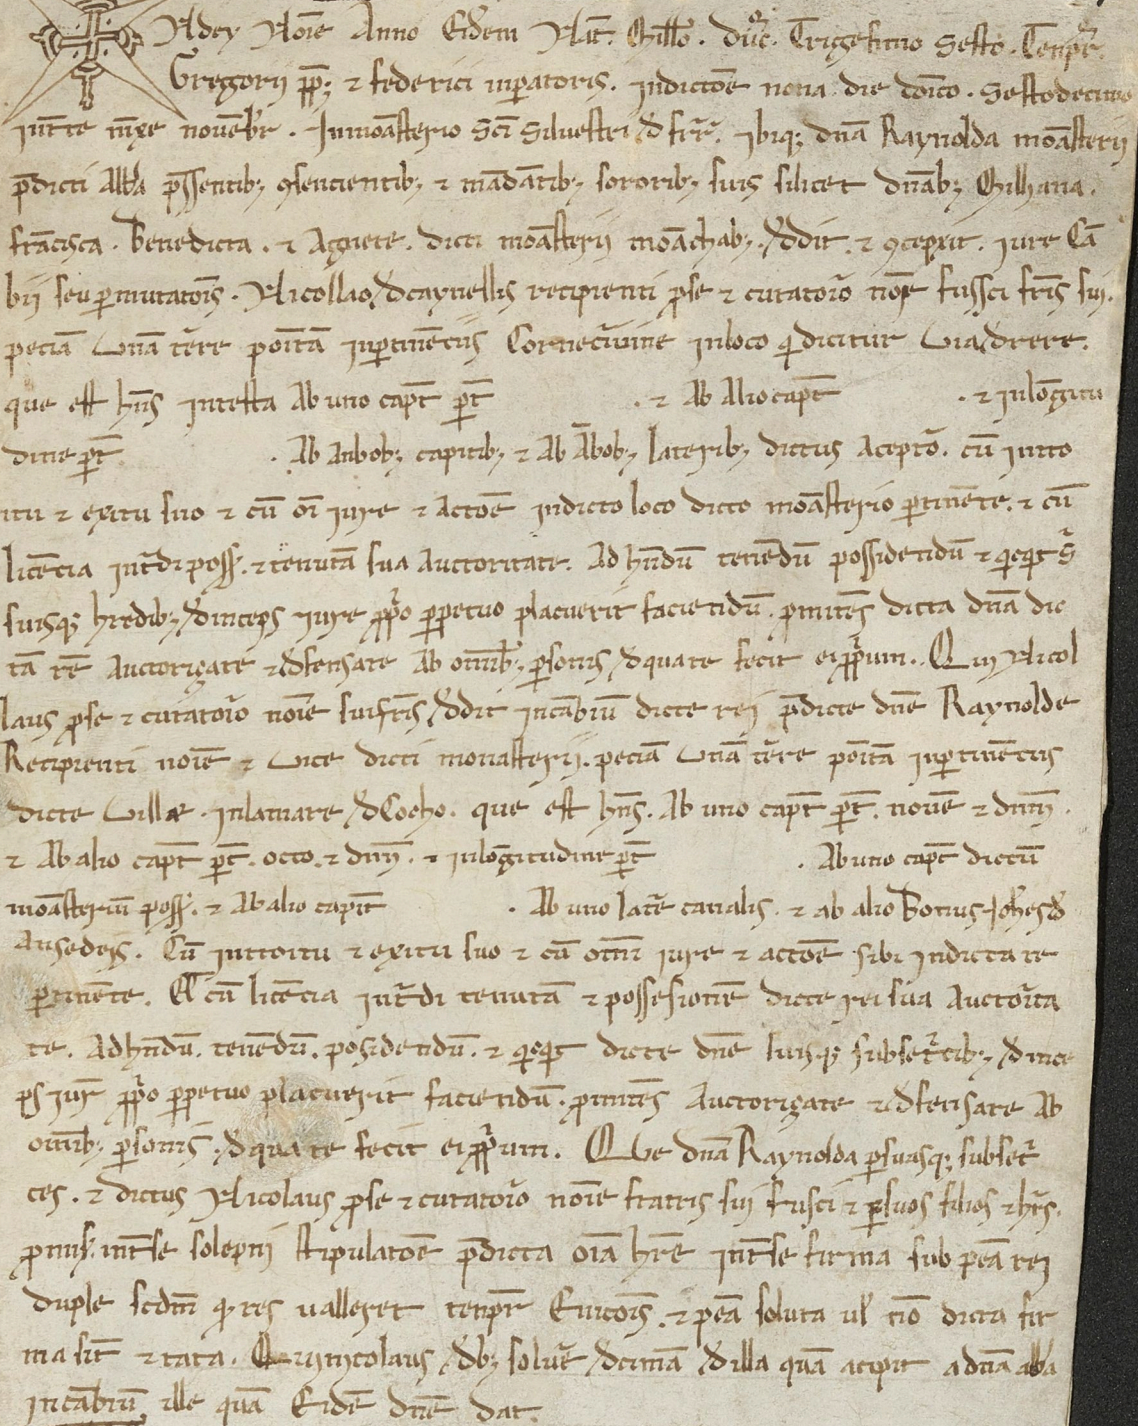 Ndei Noīe Anno Eidem Nat̄. Mill̄o. duc̄. Trigesimo Sesto. Tenpr̄.
Gregorii pp̄; ⁊ federici inp̄atoris. indictōe nona die dōico. Sestodecimo
int̄te m̄se nouēbr̄. Inmoāsterio Sci Siluestri d̄ 
ibiq; dn̄a Raynolda moāsterii
p̄dicti abb̄a p̄ssentib; ꝯsencientib; ⁊ mādātib; sororib; suis silicet dn̄ab; Ghilhana.
frācisca. benedicta. ⁊ Agnete. dicti moāsterii moāchab;. d̄dit ⁊ ꝯcepxit. iure Cā
bii seu p̄mutatōis. Nicollao d̄ caynellis recipienti p̄se ⁊ curator̄o nōīe fussci fr̄is sui.
peciā Unā tēre pōitā inp̄tinēciis Cornecl̄uine inloco q̄ dicitur Via d̄ rere.
que est hn̄s intesta Ab uno capīt p̄t . ⁊ Ab Alio capīt . ⁊ inlōgitu
dine p̄t . Ab Anbob; capitib; ⁊ Ab Ābob; lateribꝫ dictus Aceptōr. cū intro
itu ⁊ exitu suo ⁊ cū oī iure ⁊ actōe indicto loco dicto moāsterio p̄tinēte. ⁊ cū
licēcia int̄di poss̄. ⁊ tenutā sua Auctoritate. Ad hn̄dū tenēdū possidendū ⁊ q̄cq̄t s̄
suisq; hredib; d̄inceps iure p̄p̄o p̄petuo placuerit faciendū. p̄mitēs dicta dn̄a dic
tā rē Auctorigare ⁊ d̄fensare Ab omīb; p̄sonis, d̄ qua re fecit ei p̄p̄ium. Qui Nicol
laus p̄se ⁊ curator̄o noīe sui fr̄is d̄dit incābiū dicte rei p̄dicte dn̄e Raynolde
Recipienti noīe ⁊ Vice dicti monasterii. peciā Unā tēre pōitā inp̄tinēciis
dicte Ville. inlamare d̄ Cocho. que est hn̄s. Ab uno capīt p̄t. nouē ⁊ dim̄.
⁊ Ab alio capīt p̄t. octo. ⁊ dim̄. ⁊ inlōgitudine p̄t . Ab uno capīt dictū
moāsteriū poss̄. ⁊ Ab alio capīt . Ab uno latē canalis. ⁊ ab alio bonus Joh̄es d̄
Ansedeis. Cū introitu ⁊ exitu suo ⁊ cū omī iure ⁊ actōe sibi indicta re
p̄tinēte. Et cū licēcia int̄di tenutā ⁊ possesionē dicte rei sua Auctor̄ita
te. Ad hn̄dū. tenēdū. posidendū. ⁊ q̄cq̄t dicte dn̄e suisq; subset̄cib; d̄ince
ps iur̄ p̄p̄o p̄petuo placuerit faciendū. p̄mitēs Auctorigare ⁊ d̄fensare Ab
omīb; p̄sonis. d̄ qua re fecit ei p̄p̄ium. Que dn̄a Raynolda p̄ suasq; subset̄
ces. ⁊ dictus Nicolaus p̄se ⁊ curator̄o noīe fratris sui fusci ⁊ p̄suos filios ⁊ hr̄s.
promis̄. int̄se solepni stipulatōe p̄dicta oīa hr̄e int̄se firma sub pēa rei
duple scdm̄ q̄ res ualleret tenpr̄ Euicōis. ⁊ pēa soluta ul̄ nō dicta fir
ma sit ⁊ rata. Qui nycolaus d̄b; soluē d̄cimā d̄ illa quā acipit a dn̄a abb̄a
incābiū, ille quā Eidē dn̄e dat.